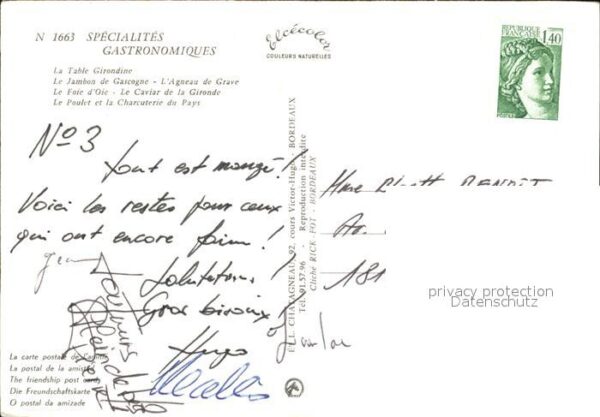 N 1663 SPÉCIALITÉS
GASTRONOMIQUES
La Table Girondine
Le Jambon de Gascogne - L'Agneau de Grave
Le Foie d'Oie - Le Caviar de la Gironde
Le Poulet et la Charcuterie du Pays
Elcécolor
COULEURS NATURELLES
REPUBLIQUE
FRANÇAISE
1,40
Nº 3
Tout est mangé!
Voici les restes pour ceux
qui ont encore faim!
Salutations!
Gros bisoux!
Hugo
Nicolas
Jean
toujours
plein de
ELL. CHATAGNEAU, 92, cours Victor-Hugo - BORDEAUX
Tél. 91.57.96 - Reproduction interdite
Cliché RICK-FOT - BORDEAUX
Mme
Av.
181
La carte postale de l'amitié
La postal de la amistad
The friendship post cards
Die Freundschaftskarte
O postal da amizade
privacy protection
Datenschutz